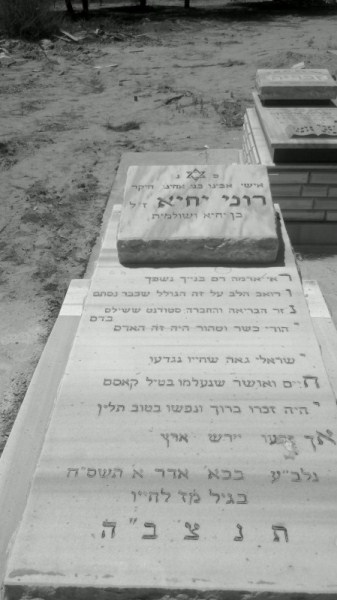 פ נ
אישי אבינו בני ואחינו היקר
רוני יחיא ז"ל
בן יחיא ושולמית
ראי אדמה דם בנייך נשפך
ודואב הלב על זה הגולל שכבר נסתם
נזר הבריאה והחברה סטודנט ששילם
בדם
יהודי כשר וטהור היה זה האדם
ישראלי גאה שחייו נגדעו
חיים ואושר שנעלמו בטיל קאסם
יהיה זכרו ברוך ונפשו בטוב תלין
אך יירש ארץ
נלב"ע בכא אדר א תשס"ח
בגיל מז לחייו
ת נ צ ב" ה